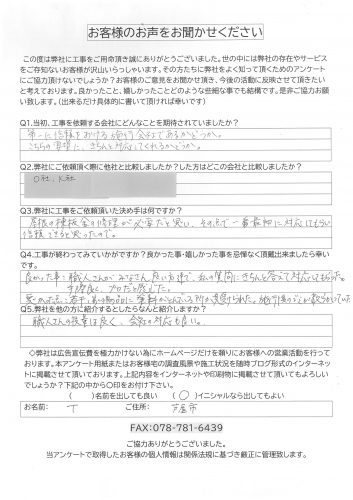 お客様のお声をお聞かせください
この度は弊社に工事をご用命頂き誠にありがとうございました。世の中には弊社の存在やサービス
をご存知ないお客様が沢山いらっしゃいます。その方たちに弊社をよく知って頂くためのアンケート
にご協力頂けないでしょうか？お客様のご意見をお聞かせ頂き、今後の活動に反映させて頂きたい
と考えております。良かったこと、嬉しかったことどのような些細な事でも結構です。是非ご協力お願
い致します。（出来るだけ具体的に書いて頂ければ幸いです）
Q1.当初、工事を依頼する会社にどんなことを期待されていましたか？
第一に信頼をおける施行会社であるかどうか。
こちらの要望に、きちんと対応してくれるかどうか。
Q2.弊社にご依頼頂く際に他社と比較しましたか？した方はどこの会社と比較しましたか？
O社、K社
Q3.弊社に工事をご依頼頂いた決め手は何ですか？
屋根の棟板金の修理が必要だと思い、その点で一番親切に対応してもらい
信頼できると思ったので。
Q4.工事が終わってみていかがですか？良かった事・嬉しかった事を忌憚なく頂戴出来ましたら幸い
です。
良かった事：職人さんがみなさん良い方達で、私の質問にきちんと答えて対応してもらった。
Q5.弊社を他の方に紹介するとしたらなんと紹介しますか？
職人さんの技量は良く、会社の対応も良い。
◇弊社は広告宣伝費を極力かけない為にホームページだけを頼りにお客様への営業活動を行って
おります。本アンケート用紙またはお客様宅の調査風景や施工状況を随時ブログ形式のインターネット
に掲載させて頂いております。上記内容をインターネットや印刷物に掲載させて頂いてもよろしい
でしょうか？下記の中から〇印をお付け下さい。
（　）名前を出しても良い　（〇）イニシャルなら出してもよい
お名前： T　ご住所： 芦屋市
FAX:078-781-6439
ご協力ありがとうございました。
当アンケートで取得したお客様の個人情報は関係法規に基づき厳正に管理致します。